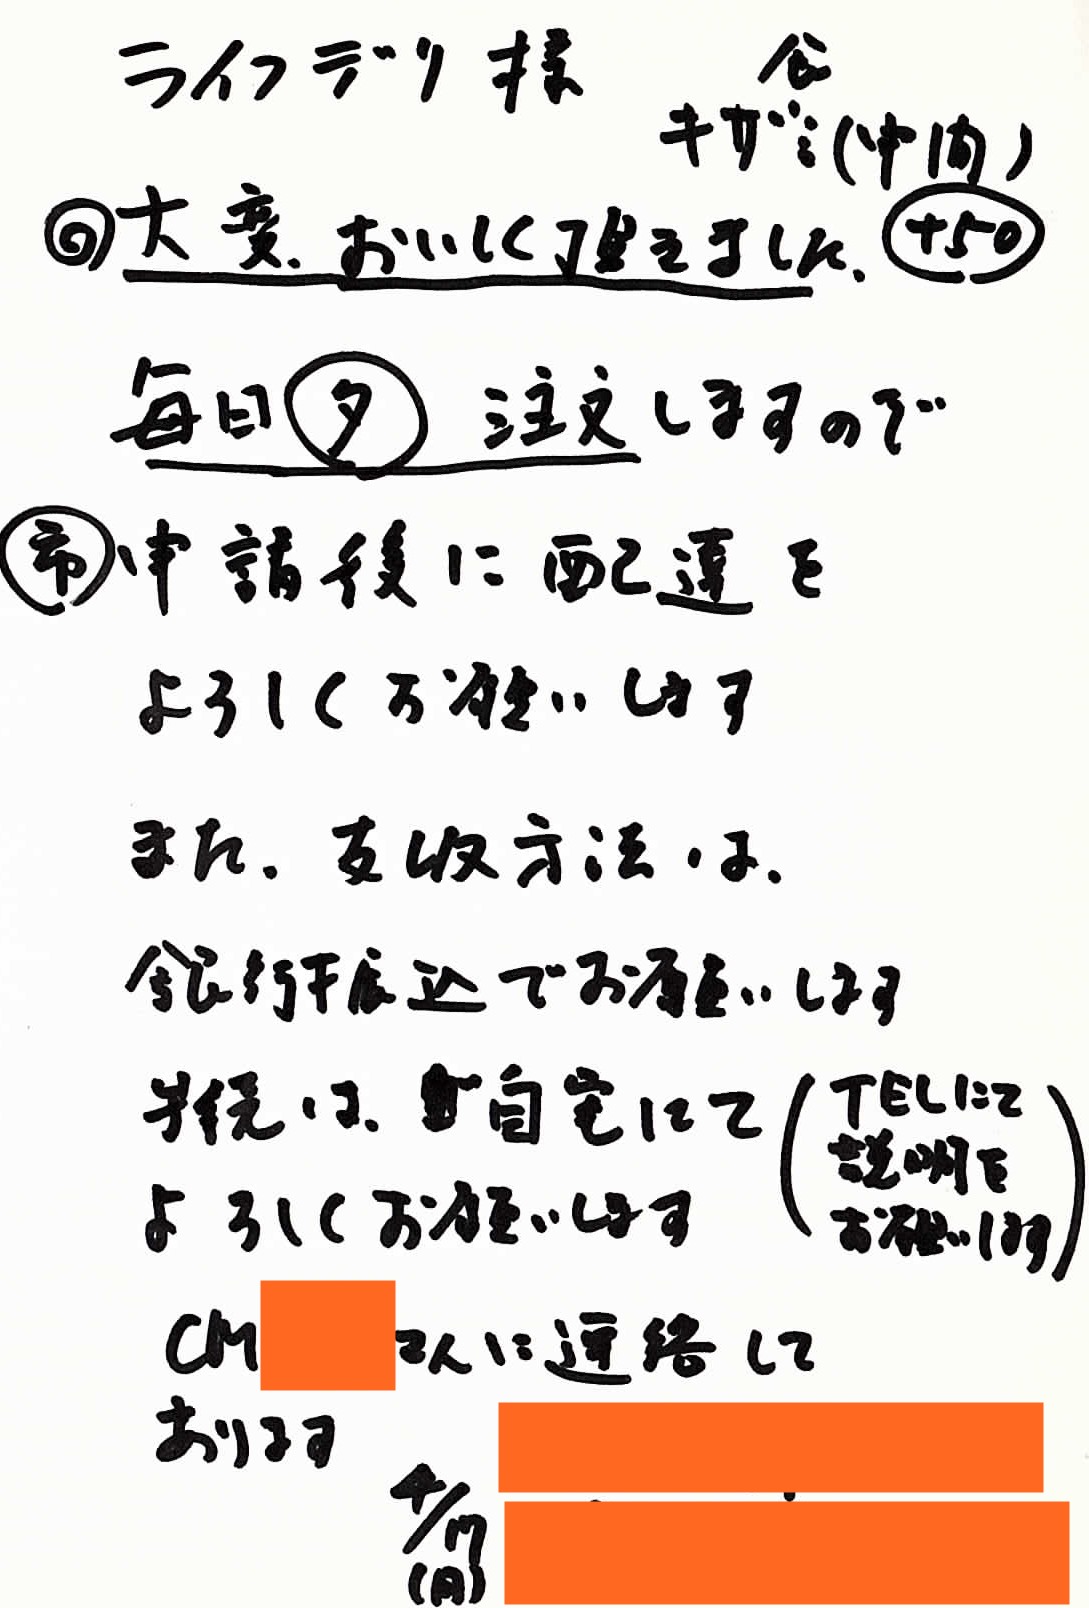 ライフデリ様
食
キザミ(中間)
◎大変、おいしく頂きました、 +50
毎日夕 注文しますので
市 申請後に配達を
よろしくお願いします
また、支収方法は、
銀行振込でお願いします
手続は、自宅にて
(TELにて
説明を
お願いします)
よろしくお願いします
CM さんに連絡して
おります
4/17
(月)